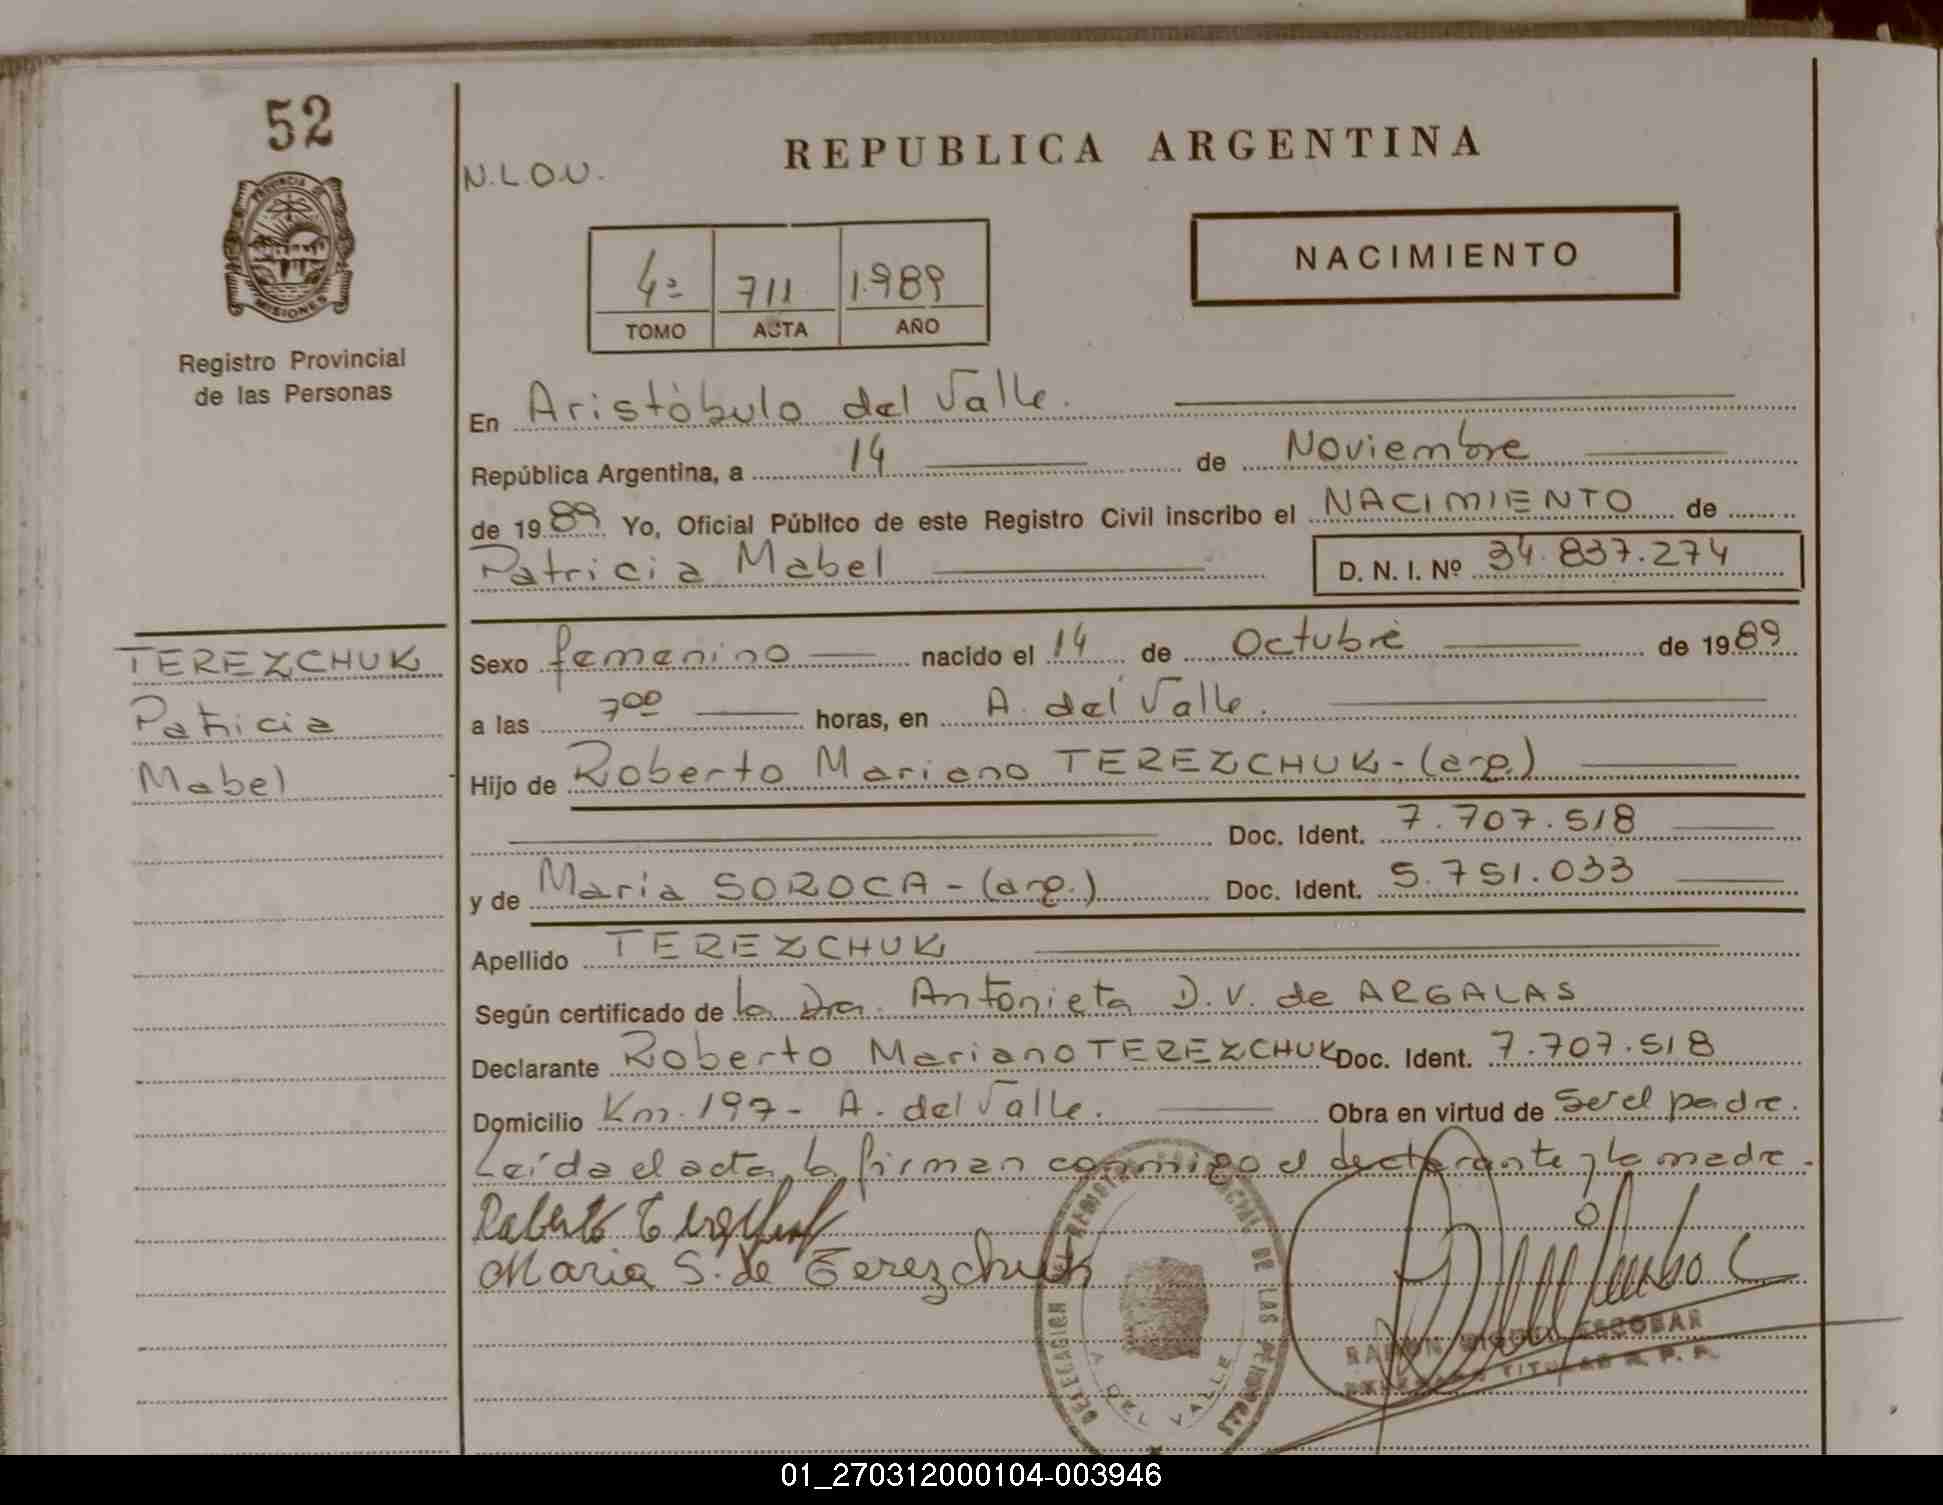 52
PROVINCIA DE
MISIONES
Registro Provincial
de las Personas
TEREZCHUK
Patricia
Mabel
N.L.O.U.
REPUBLICA ARGENTINA
4ª 711 1.989
TOMO ACTA AÑO
NACIMIENTO
En Aristóbulo del Valle.
República Argentina, a 14 de Noviembre
de 1989 Yo, Oficial Público de este Registro Civil inscribo el NACIMIENTO de
Patricia Mabel D. N. I. Nº 34.837.274
Sexo femenino nacido el 14 de Octubre de 1989
a las 7 00 horas, en A. del Valle.
Hijo de Roberto Mariano TEREZCHUK - (arg.)
Doc. Ident. 7.707.518
y de Maria SOROCA - (arg.) Doc. Ident. 5.751.033
Apellido TEREZCHUK
Según certificado de la Dra. Antonieta D.V. de ARGALAS
Declarante Roberto Mariano TEREZCHUK Doc. Ident. 7.707.518
Domicilio Km. 197 - A. del Valle. Obra en virtud de ser el padre.
Leída el acta, la firman conmigo el declarante y la madre.
Roberto
Maria S. de Terezchuk
DELEGACION DEL REGISTRO PROVINCIAL DE LAS PERSONAS
A. DEL VALLE
RAMON MIGUEL ESCOBAR
DELEGADO TITULAR R. P. P.
01_270312000104-003946